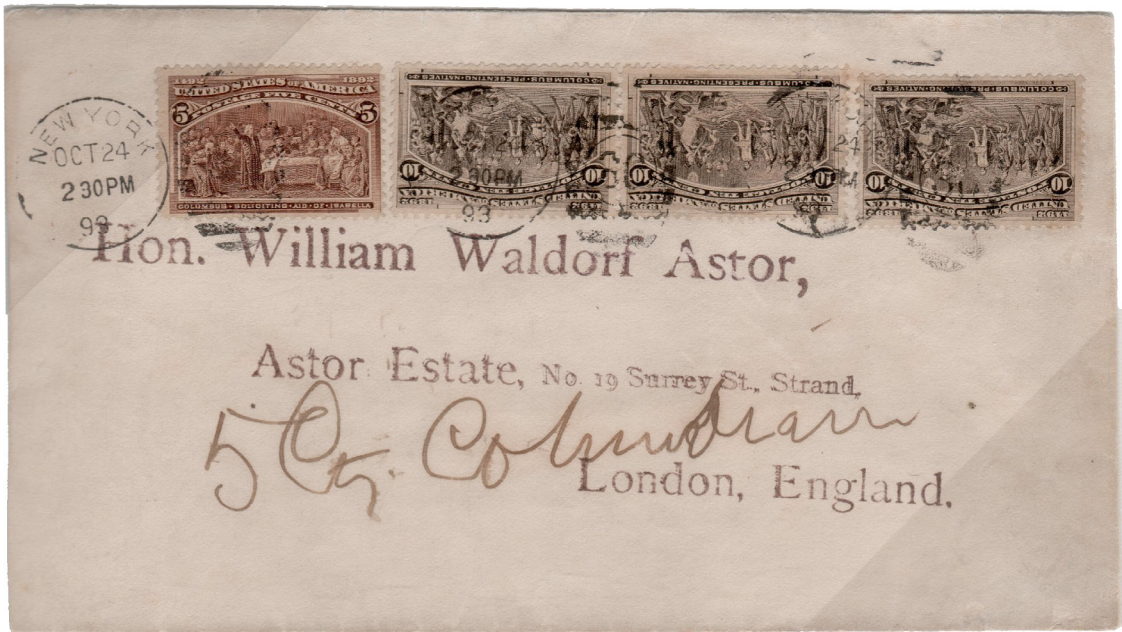 1492 1892
UNITED STATES OF AMERICA
5 POSTAGE FIVE CENTS 5
COLUMBUS SOLICITING AID OF ISABELLA
COLUMBUS PRESENTING NATIVES
10 10
COLUMBUS PRESENTING NATIVES
10 10
COLUMBUS PRESENTING NATIVES
10 10
NEW YORK
OCT 24
2 30 PM
93
2 30 PM
93
24
Hon. William Waldorf Astor,
Astor Estate, No. 19 Surrey St., Strand,
5 Cts. Columbian
London, England.